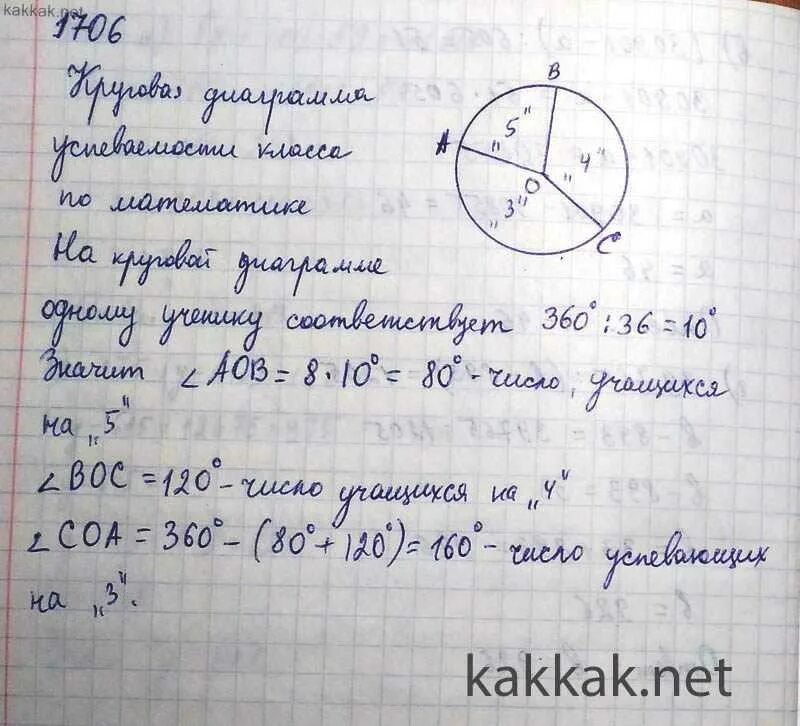 kakkak.net
1706
Круговая диаграмма
успеваемости класса
по математике
На круговой диаграмме
одному ученику соответствует 360° : 36 = 10°
Значит ∠AOB = 8 · 10° = 80° - число, учащихся
на „5"
∠BOC = 120° - число учащихся на „4"
∠COA = 360° - (80° + 120°) = 160° - число успевающих
на „3".
B
A
„5"
„4"
O
„3"
C
kakkak.net